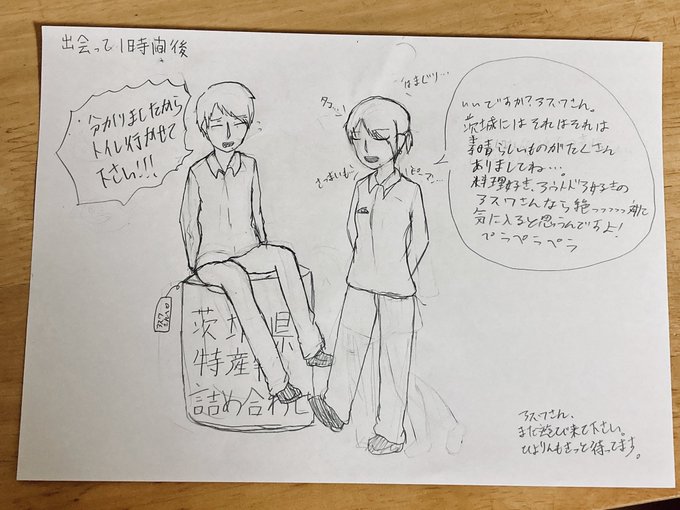 出会って1時間後
分かりましたから
トイレ行かせて
下さい!!!
はまぐり…
タコ…!
さつまいも
いいですか?アスワさん。
茨城にはそれはそれは
素晴らしいものがたくさん
ありましてね…。
料理好き、アウトドア好きの
アスワさんなら絶っっっっっ対に
気に入ると思うんですよ!
ペラペラペラ
アスワ
さんへ
茨城県
特産
詰め合わせ
アスワさん、
また遊び来て下さい。
ひよりんもきっと待ってます。